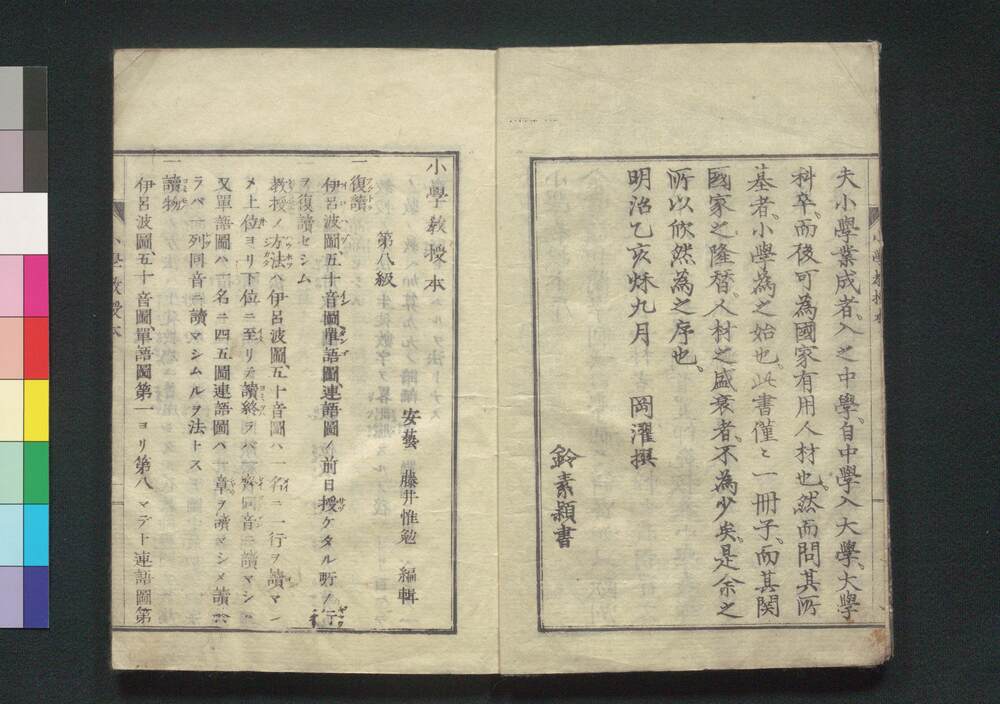 夫小學業成者、入之中學、自中學入大學、大學
科卒、而後可為國家有用人材也、然而問其所
基者、小學為之始也、此書僅々一冊子、而其関
國家之隆替、人材之盛衰者、不為少矣、是余之
所以欣然為之序也、
明治乙亥秌九月　岡濯撰
鈴素顥書
小學教授本
安藝　藤井惟勉　編輯
第八級
一復讀
伊呂波圖、五十音圖、單語圖、連語圖、ノ前日授ケタル所ノ
ヲ復讀セシム
教授ノ方法ハ伊呂波圖、五十音圖ハ一名ニ一行ヲ讀マシ
メ上位ヨリ下位ニ至リテ讀終ラバ齊同音ニ讀マシ
又單語圖ハ一名ニ四五圖連語圖ハ其章ヲ讀マシメ讀終
ラバ一列同音ニ讀マシムルヲ法トス
一讀物
伊呂波圖五十音圖、單語圖第一ヨリ第八マデト連語圖第
小學教授本